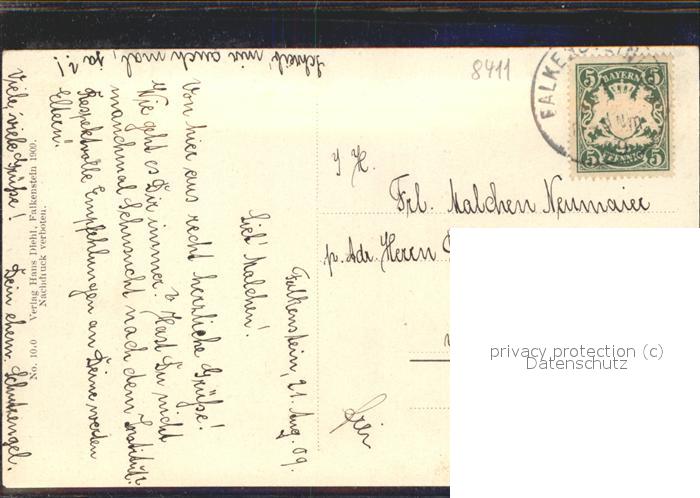 Falkenstein, 21. Aug. 09.
Lieb' Malchen!
Von hier aus recht herzliche Grüße!
Wie geht es Dir immer? Hast Du nicht
manchmal Sehnsucht nach dem Institut?
Respektvolle Empfehlungen an Deine werten
Eltern!
Viele, viele Grüße! Dein ehem. Schutzengel.
Schreib' mir auch mal, ja?!
No. 10.0 Verlag Hans Diehl, Falkenstein 1909.
Nachdruck verboten.
8411
FALKENSTEIN
5 BAYERN 5
5 PFENNIG 5
Frl. Malchen Neumaier
p. Adr. Herrn
frei
privacy protection (c)
Datenschutz